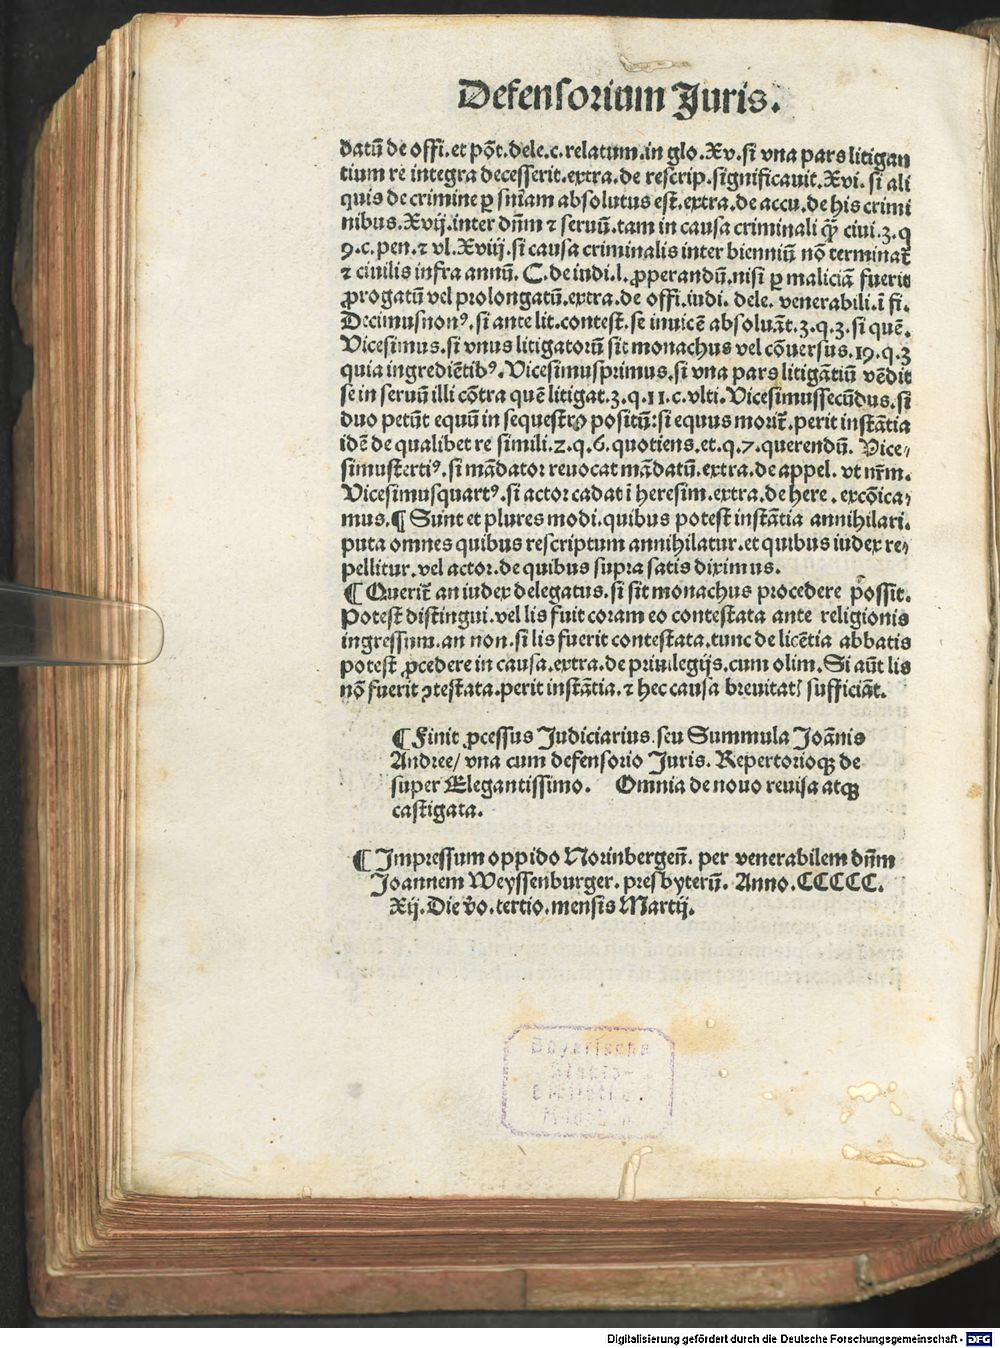 Defensorium Juris.
datū de offi. et pōt. dele. c. relatum. in glo. Xv. si vna pars litigan
tium re integra decesserit. extra. de rescrip. significauit. Xvi. si ali
quis de crimine ꝑ sniam absolutus est. extra. de accu. de his crimi
nibus. Xvij. inter dn̄m ⁊ seruū. tam in causa criminali ꝙ̄ ciui. 3. q
9. c. pen. ⁊ vl. Xviij. si causa criminalis inter bienniū nō terminat᷑
⁊ ciuilis infra annū. C. de iudi. l. ꝓperandū. nisi ꝑ maliciā fuerit
ꝓrogatū vel prolongatū. extra. de offi. iudi. dele. venerabili. ī fi.
Decimusnonꝰ. si ante lit. contest. se inuicē absoluāt. 3. q. 3. si quē.
Vicesimus. si vnus litigatorū sit monachus vel cōuersus. 19. q. 3
quia ingrediētibꝰ. Vicesimusprimus. si vna pars litigātiū vēdit
se in seruū illi cōtra quē litigat. 3. q. 11. c. vlti. Vicesimussecūdus. si
duo petūt equū in sequestro positū: si equus morit᷑. perit instātia
idē de qualibet re simili. 2. q. 6. quotiens. et. q. 7. querendū. Vice⸗
simustertiꝰ. si mādator reuocat mādatū. extra. de appel. vt nr̄m.
Vicesimusquartꝰ. si actor cadat ī heresim. extra. de here. excōica⸗
mus. ¶ Sunt et plures modi. quibus potest instātia annihilari.
puta omnes quibus rescriptum annihilatur. et quibus iudex re⸗
pellitur. vel actor. de quibus supra satis diximus.
¶ Querit᷑ an iudex delegatus. si sit monachus procedere possit.
Potest distingui. vel lis fuit coram eo contestata ante religionis
ingressum. an non. si lis fuerit contestata. tunc de licētia abbatis
potest ꝓcedere in causa. extra. de priuilegijs. cum olim. Si aūt lis
nō fuerit ꝯtestata. perit instātia. ⁊ hec causa breuitatꝭ sufficiāt.
¶ Finit ꝓcessus Judiciarius. seu Summula Joānis
Andree/ vna cum defensorio Juris. Repertorioqꝫ de
super Elegantissimo. Omnia de nouo reuisa atqꝫ
castigata.
¶ Impressum oppido Norinbergen̄. per venerabilem dn̄m
Joannem Weyssenburger. presbyterū. Anno. CCCCC.
Xij. Die v̊o. tertio. mensis Martij.
Bayerische
Staats-
bibliothek
München
Digitalisierung gefördert durch die Deutsche Forschungsgemeinschaft - DFG